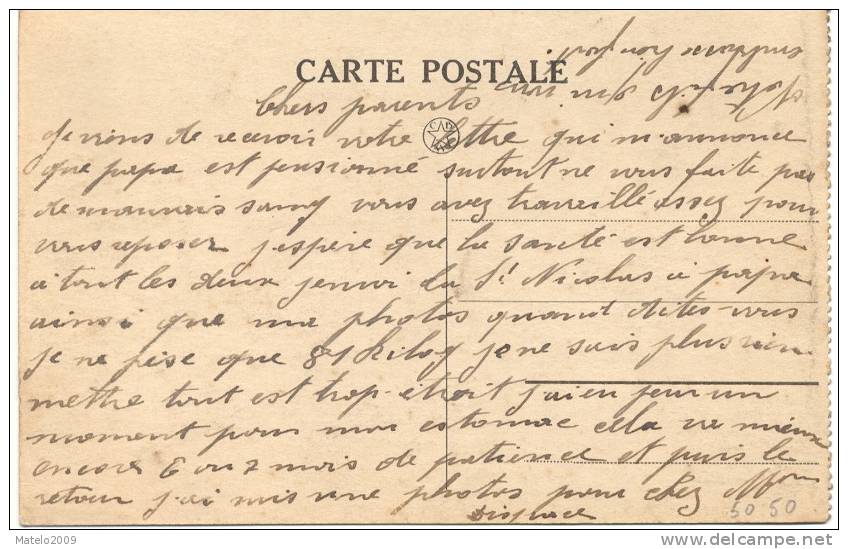 CARTE POSTALE
Chers parents
je viens de recevoir votre lettre qui m'annonce
que papa est pensionné surtout ne vous faite pas
de mauvais sang vous avez travaillé assez pour
vous reposer j'espère que la santé est bonne
a tout les deux jenvoi la St Nicolas a papa
ainsi que ma photos quand dites-vous
je ne pèse que 81 kilog je ne sais plus rien
mettre tout est trop étroit j'ai eu peur un
moment pour mon estomac cela va mieux
encore 6 ou 7 mois de patience et puis le
retour j'ai mis une photos pour chez
50 50
Matelo2009
delcampe.net